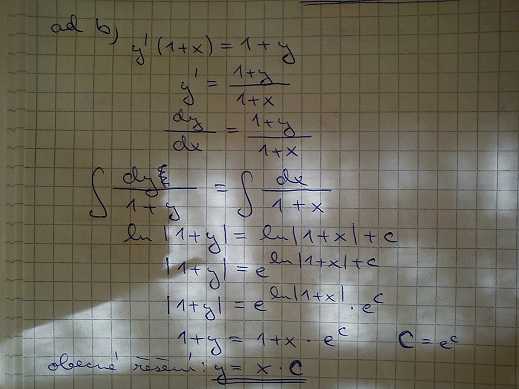 ad b)
y' (1+x) = 1+y
y' = \frac{1+y}{1+x}
\frac{dy}{dx} = \frac{1+y}{1+x}
∫ \frac{dy}{1+y} = ∫ \frac{dx}{1+x}
ln|1+y| = ln|1+x| + c
|1+y| = e^{ln|1+x|+c}
|1+y| = e^{ln|1+x|} · e^{c}
1+y = 1+x · e^{c} C = e^{c}
obecné řešení: y = x · C